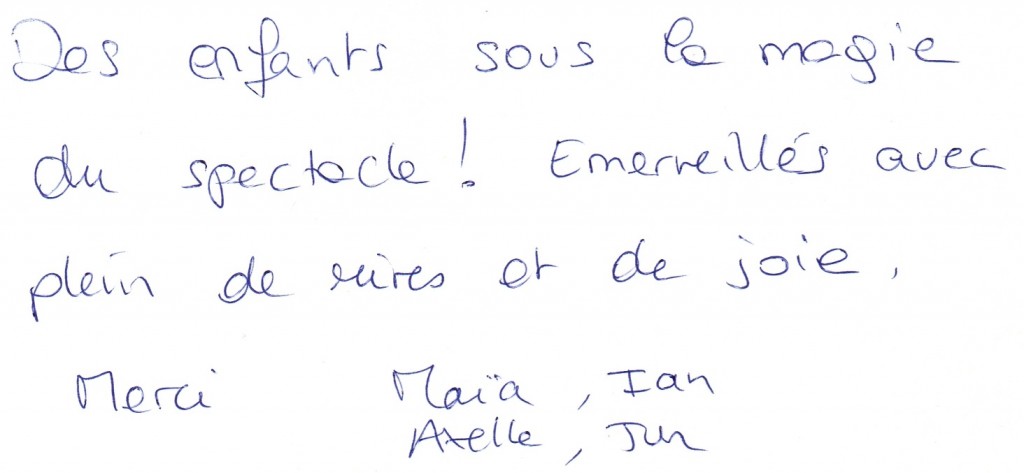 Des enfants sous la magie
du spectacle ! Emerveillés avec
plein de rires et de joie.
Merci Maïa, Ian
Axelle, Jun